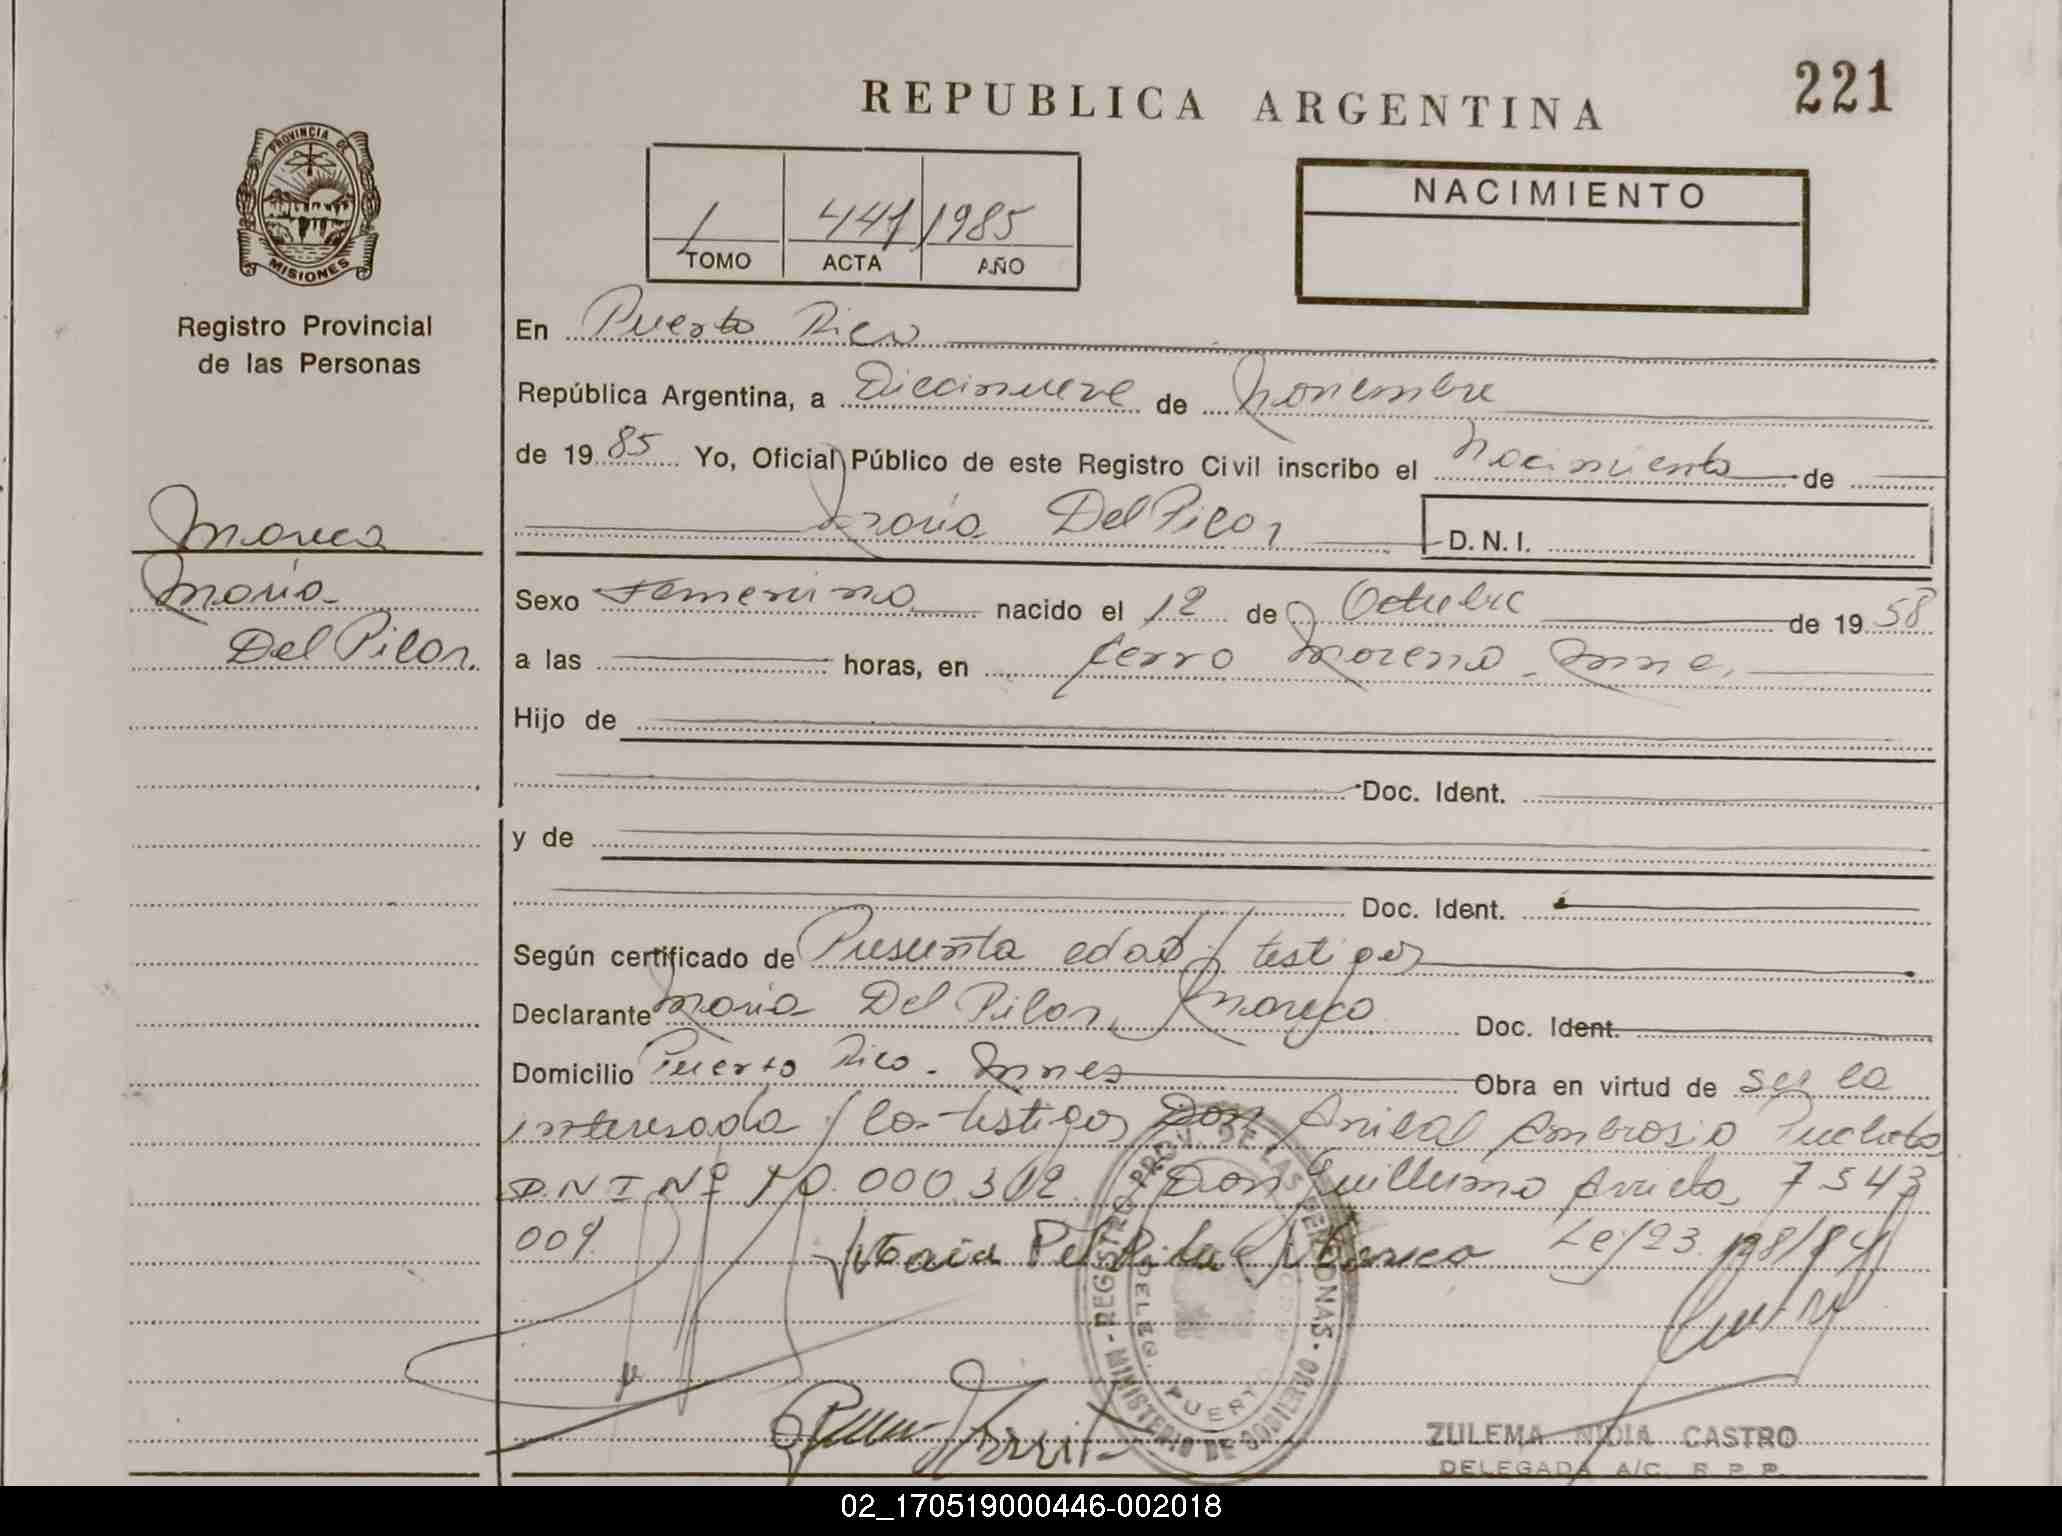 221
REPUBLICA ARGENTINA
PROVINCIA DE
MISIONES
1 441 1985
TOMO ACTA AÑO
NACIMIENTO
Registro Provincial
de las Personas
En Puerto Rico
República Argentina, a Diecinueve de Noviembre
de 19 85 Yo, Oficial Público de este Registro Civil inscribo el Nacimiento de
María Del Pilar D.N.I.
Mareco
María
Del Pilar
Sexo Femenino nacido el 12 de Octubre de 19 58
a las horas, en Cerro Moreno
Hijo de
Doc. Ident.
y de
Doc. Ident.
Según certificado de Presunta edad / testigos
Declarante María Del Pilar Mareco Doc. Ident.
Domicilio Puerto Rico - Mnes Obra en virtud de ser la
interesada / los testigos Don Anibal Ambrosio
DNI Nº 10.000.312 Don Guillermo Arrieta 7 543
009. María Del Pilar Mareco Ley 23.128/84
REGISTRO PROV. DE LAS PERSONAS
MINISTERIO DE GOBIERNO
DELEG. PUERTO
ZULEMA NIDIA CASTRO
DELEGADA A/C. R.P.P.
02_170519000446-002018